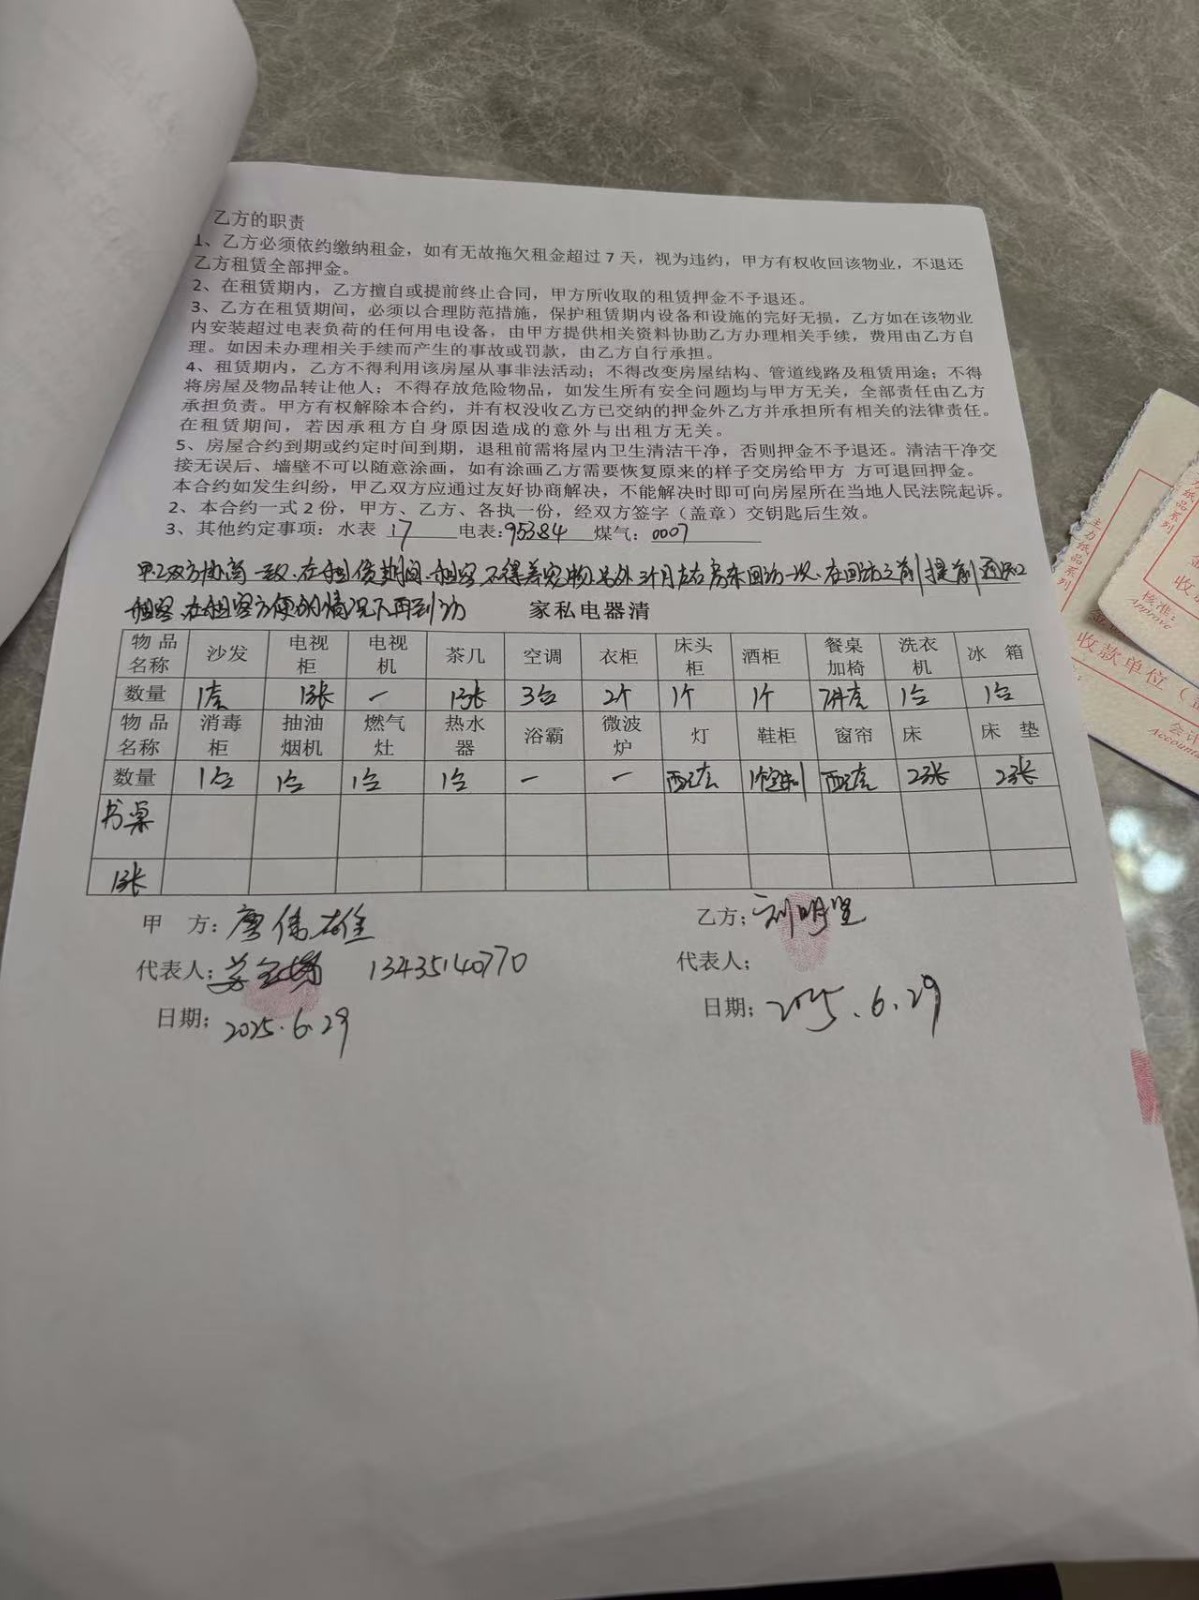 乙方的职责
1、乙方必须依约缴纳租金，如有无故拖欠租金超过 7 天，视为违约，甲方有权收回该物业，不退还
乙方租赁全部押金。
2、在租赁期内，乙方擅自或提前终止合同，甲方所收取的租赁押金不予退还。
3、乙方在租赁期间，必须以合理防范措施，保护租赁期内设备和设施的完好无损，乙方如在该物业
内安装超过电表负荷的任何用电设备，由甲方提供相关资料协助乙方办理相关手续，费用由乙方自
理。如因未办理相关手续而产生的事故或罚款，由乙方自行承担。
4、租赁期内，乙方不得利用该房屋从事非法活动；不得改变房屋结构、管道线路及租赁用途；不得
将房屋及物品转让他人；不得存放危险物品，如发生所有安全问题均与甲方无关，全部责任由乙方
承担负责。甲方有权解除本合约，并有权没收乙方已交纳的押金外乙方并承担所有相关的法律责任。
在租赁期间，若因承租方自身原因造成的意外与出租方无关。
5、房屋合约到期或约定时间到期，退租前需将屋内卫生清洁干净，否则押金不予退还。清洁干净交
接无误后、墙壁不可以随意涂画，如有涂画乙方需要恢复原来的样子交房给甲方 方可退回押金。
本合约如发生纠纷，甲乙双方应通过友好协商解决，不能解决时即可向房屋所在当地人民法院起诉。
2、本合约一式 2 份，甲方、乙方、各执一份，经双方签字（盖章）交钥匙后生效。
3、其他约定事项：水表 17 电表：95384 煤气：0007
甲乙双方协商一致.在租赁期间.租客不得养宠物.另外三个月左右房东回访一次.在回访之前提前通知
租客.在租客方便的情况下再到访 家私电器清
物品名称 沙发 电视柜 电视机 茶几 空调 衣柜 床头柜 酒柜 餐桌加椅 洗衣机 冰箱
数量 1套 1张 一 1张 3台 2个 1个 1个 1台 1台
物品名称 消毒柜 抽油烟机 燃气灶 热水器 浴霸 微波炉 灯 鞋柜 窗帘 床 床垫
数量 1台 1台 1台 1台 一 一 配套 配套 2张 2张
书桌
1张
甲 方：廖伟雄 乙方；刘明坚
代表人： 13435140770 代表人；
日期；2025.6.29 日期；2025.6.29
主力纸品系列
收款单位（
核准：
Approve
会计
Accounta